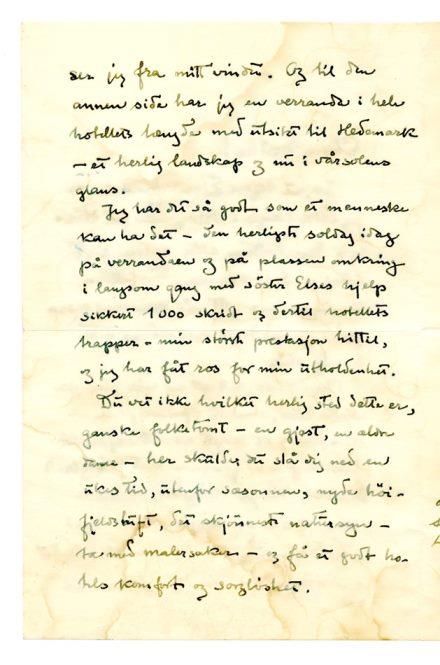 ser jeg fra mitt vindu. Og til den
annen side har jeg en verranda i hele
hotellets længde med utsikt til Hedemark
– et herlig landskap og nu i vårsolens
glans.
Jeg har det så godt som et menneske
kan ha det – den herligste soldag idag
på verrandaen og på plassen omkring
i langsom gang med söster Elses hjelp
sikkert 1000 skridt og dertil hotellets
trapper – min störste prestasjon hittil,
og jeg har fåt ros for min utholdenhet.
Du vet ikke hvilket herlig sted dette er,
ganske folketomt – en gjest, en eldre
dame – her skulde du slå dig ned en
ukes tid, utenfor sæsonnen, nyde höi-
fjeldsluft, det skjönneste natursyn –
ta med malersaker – og få et godt ho-
tels komfort og sorglöshet.